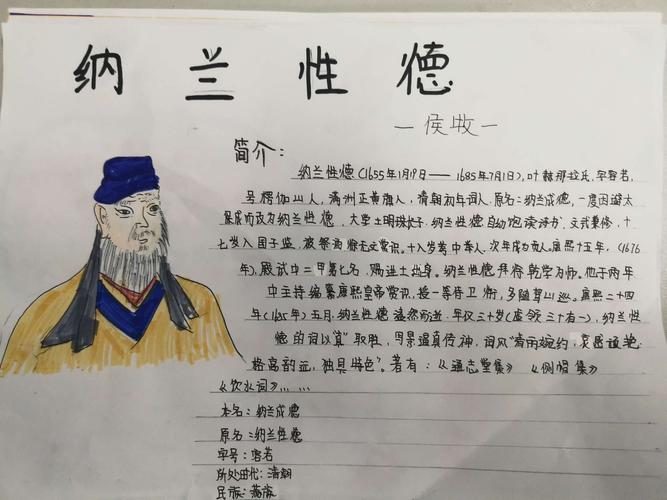 纳兰性德
一侯牧一
简介:
纳兰性德(1655年1月19日——1685年7月1日),叶赫那拉氏,字容若,
号楞伽山人,满洲正黄旗人,清朝初年词人,原名:纳兰成德,一度因避太
保成而改为纳兰性德,大学士明珠长子,纳兰性德自幼饱读诗书,文武兼修,十
七岁入国子监,被祭酒徐元文赏识。十八岁考中举人,次年成为贡人。康熙十五年,(1676
年),殿试中二甲第七名,赐进士出身。纳兰性德拜徐乾学为师。他于两年
中主持编纂康熙皇帝赏识,授一等侍卫衔,多随驾出巡。康熙二十四
年(1685)五月,纳兰性德溘然而逝,年仅三十岁(虚龄三十有一),纳兰性
德的词以"真"取胜,写景逼真传神,词风"清丽婉约,哀感顽艳
格高韵远,独具特色"。著有:《通志堂集》《侧帽集》
《饮水词》……
本名:纳兰成德
原名:纳兰性德
字号:容若
所处时代:清朝
民族:满族